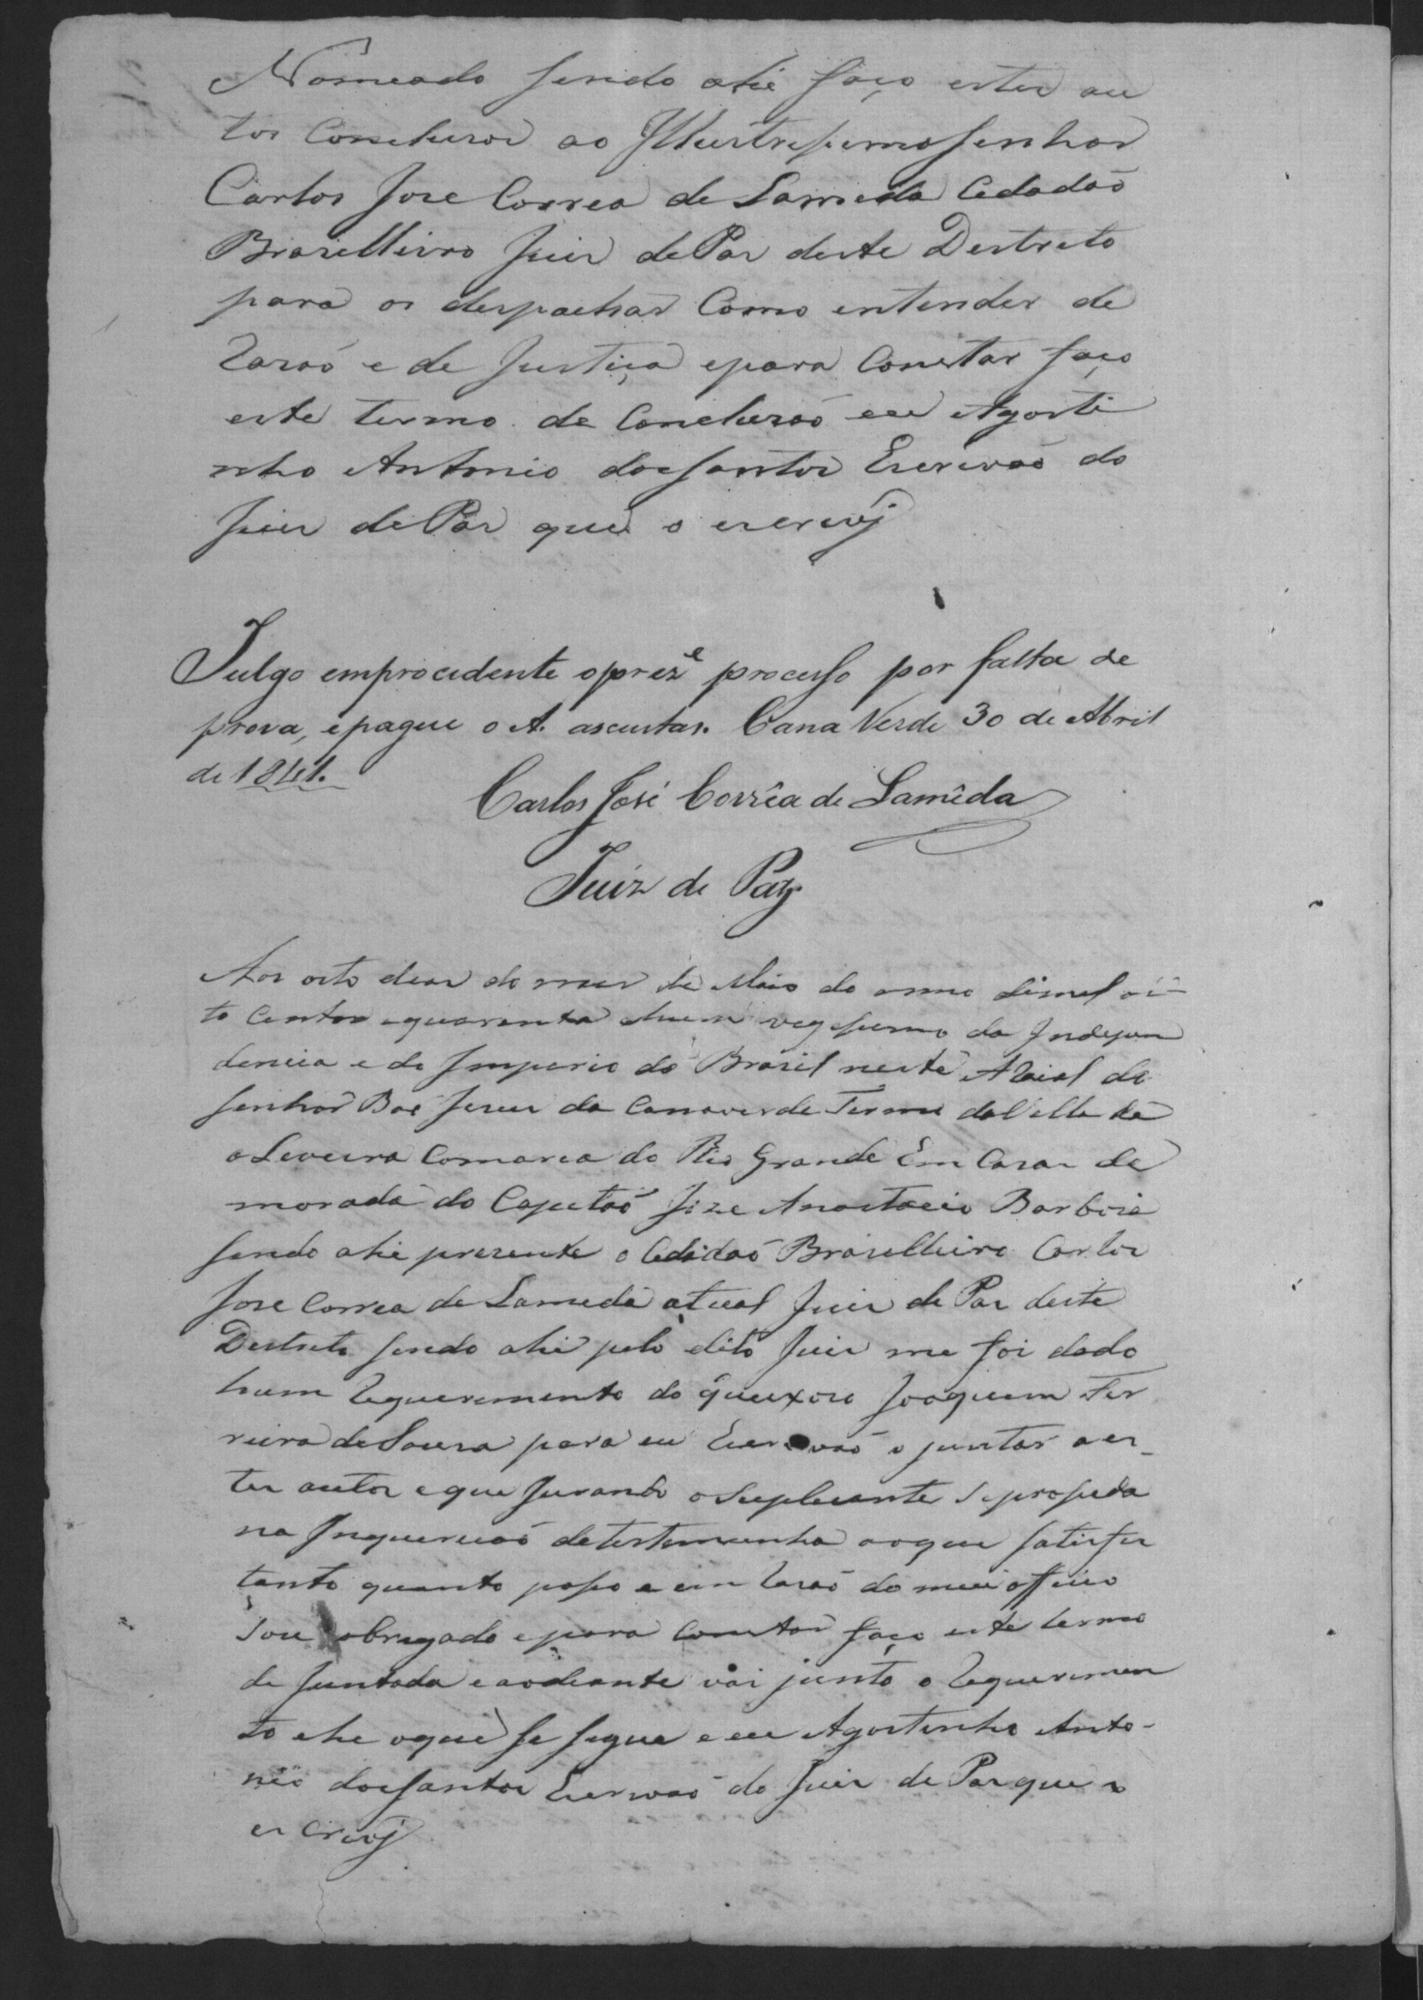 Nomeado sendo ahi faço estes au
tos Concluzos ao Illustrissimo Senhor
Carlos Jose Correa de Lameda Cedadaõ
Brazilleiro Juiz de Paz deste Destreto
para os despachar Como entender de
razaõ e de Justiça epara Constar faço
este termo de Concluzaõ eu Agosti
nho Antonio dos Santos Escrivaõ do
Juiz de Paz que o escrevj
Julgo emprocidente oprezᵉ processo por falta de
prova, epague o A. ascustas. Cana Verde 30 de Abril
de 1841.
Carlos José Corrêa de Lamêda
Juiz de Paz
Aos oito dias do mes de Maio do anno demil oi-
to Centos equarenta ehum vegesimo da Indepen
dencia e do Imperio do Brazil neste Araial do
Senhor Bom Jesus da Canaverde Termo da Villa de
oLeveira Comarca do Rio Grande Em Cazas de
morada do Capitaõ Jose Anastacio Barboza
sendo ahi prezente o Cedadaõ Brazilleiro Carlos
Jose Correa de Lameda atual Juiz de Paz deste
Destreto sendo ahi pelo dito Juiz me foi dado
hum requerimento do queixozo Joaquim Fer
reira de Souza para eu Escrivaõ o juntar a es-
tes autos eque Jurando o Suplicante se proseda
na Inquiricaõ detestemunha aoque satisfis
tanto quanto posso e em razaõ do meu officio
sou obrigado epara constar faço este termo
de Juntada eaodiante vai junto o requerimen
to ehe oque se segue e eu Agostinho Anto-
nio dos Santos Escrivaõ do Juiz de Paz que o
escrevj